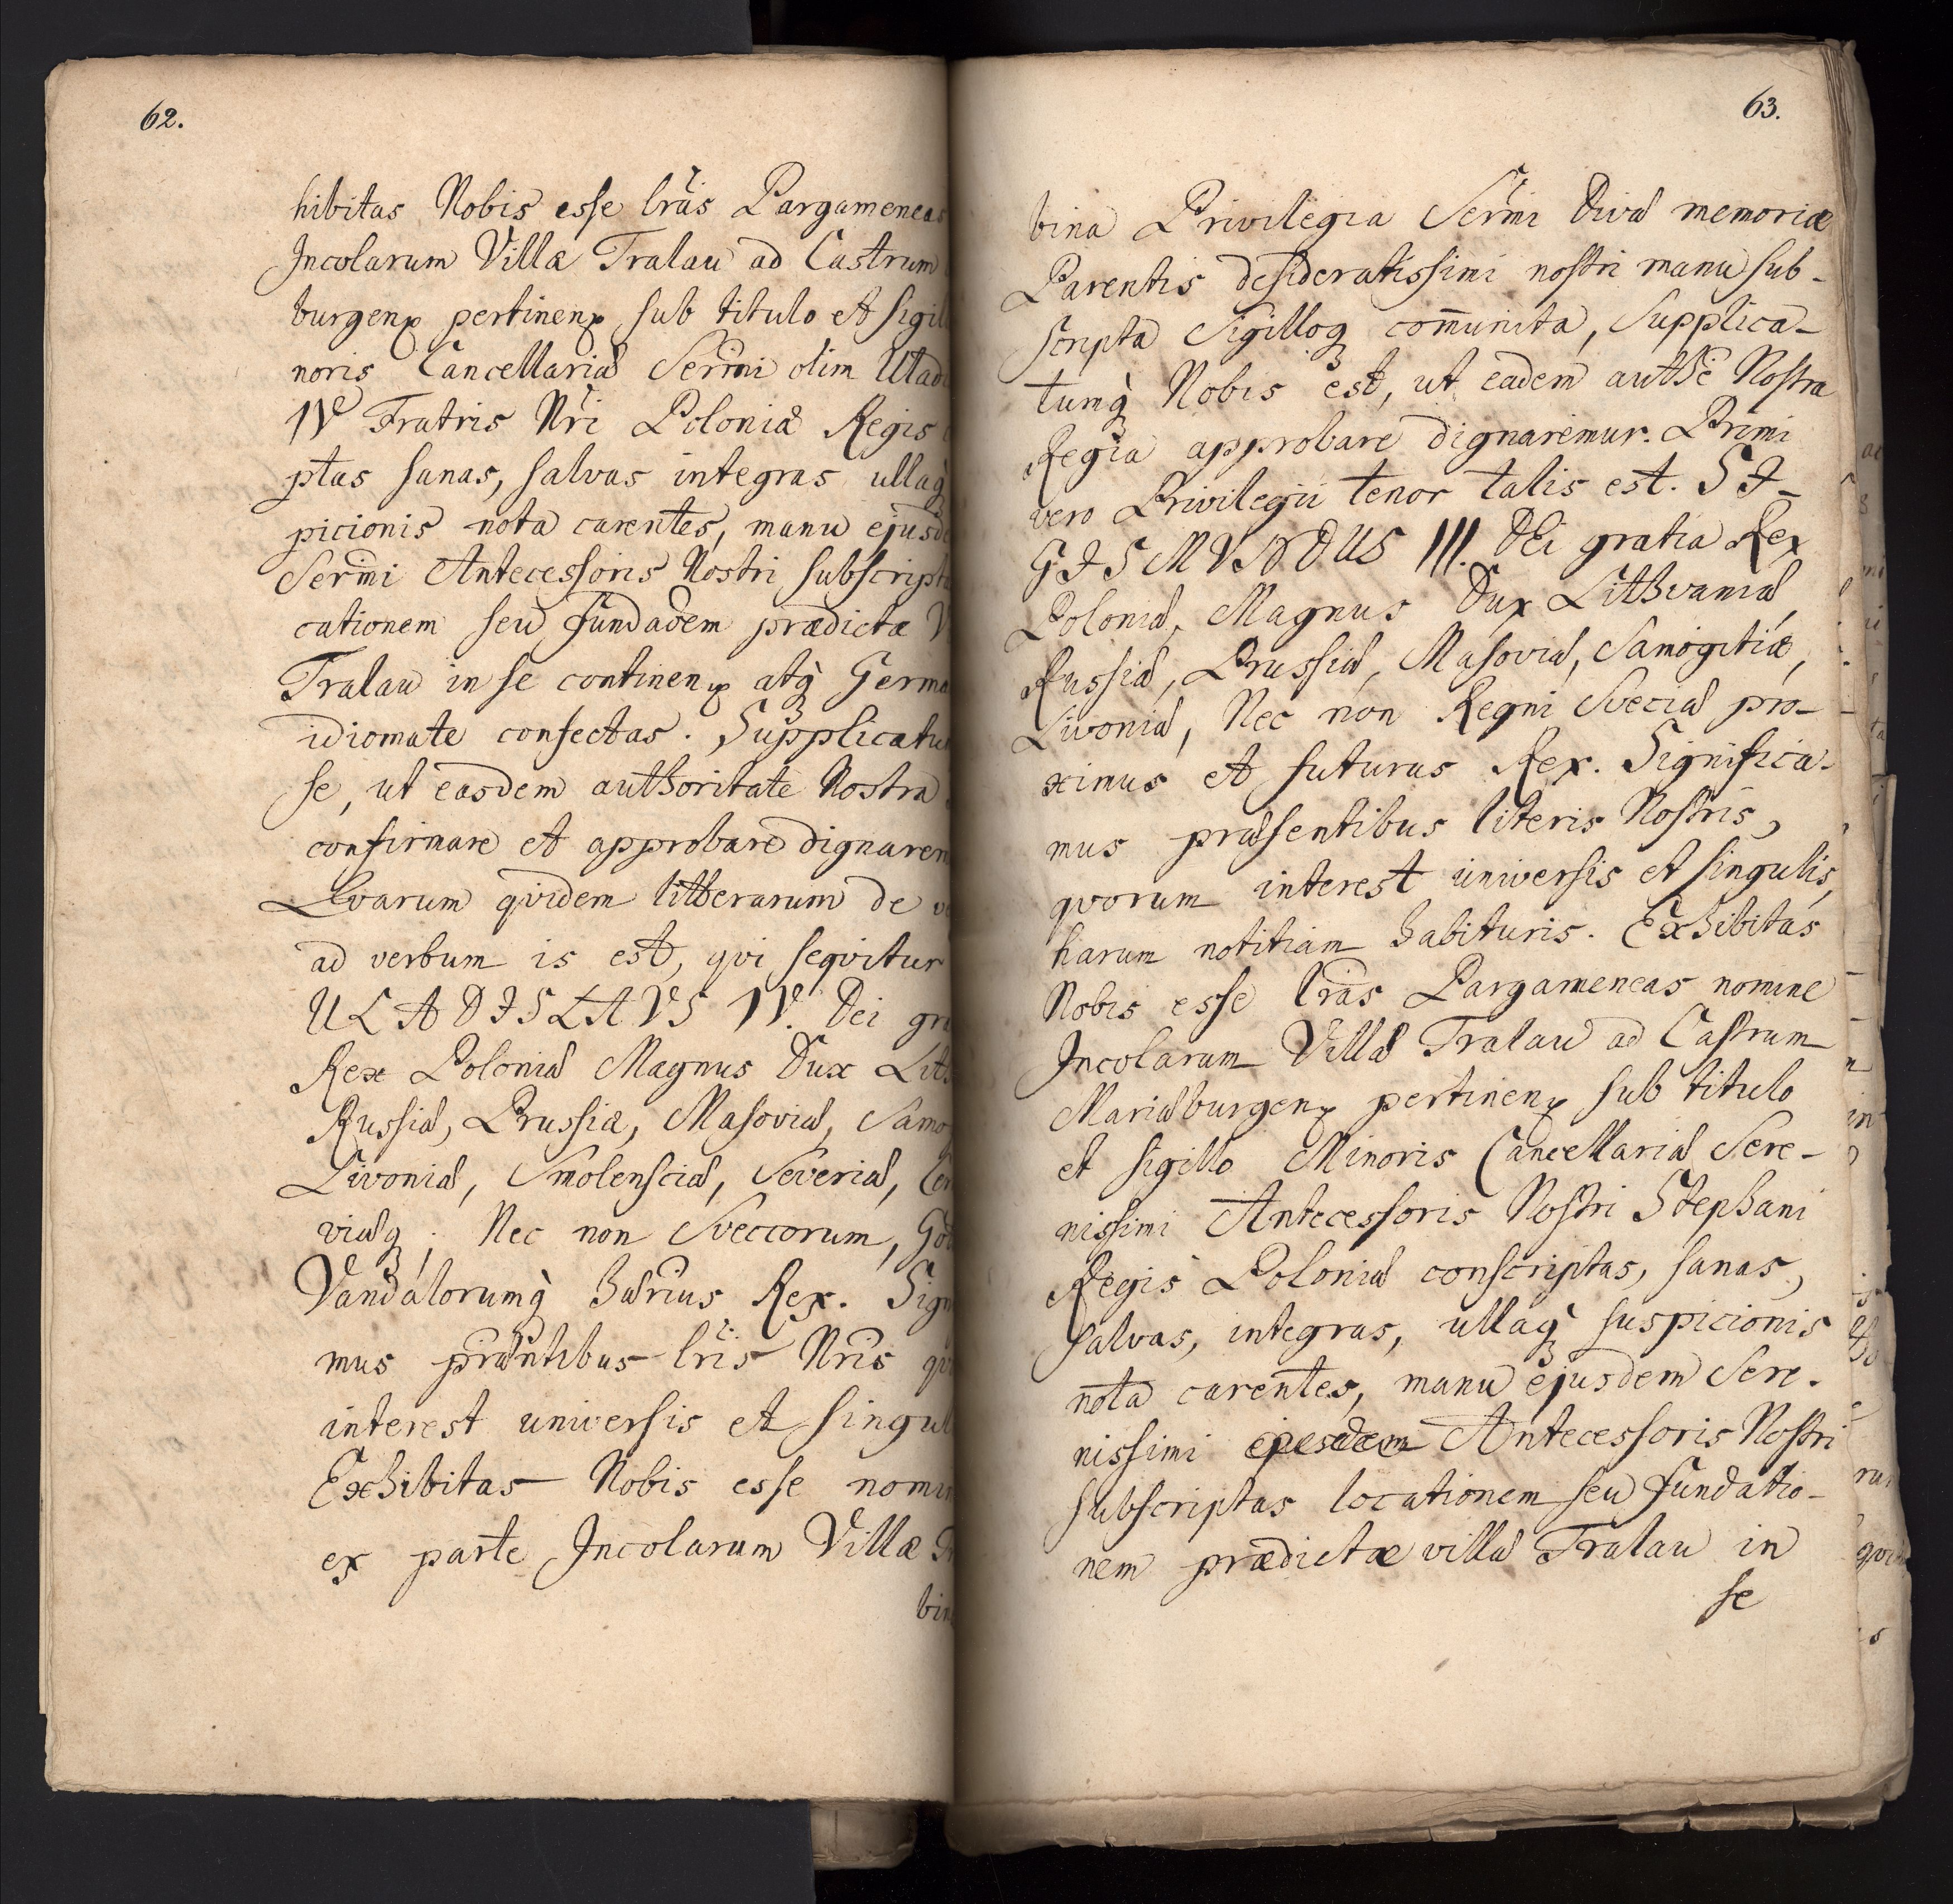 62.
hibitas Nobis esse lr̃as Pargameneas
Incolarum Villæ Tralau ad Castrum
burgenꝭ pertinenꝭ sub titulo et sigil
noris Cancellariæ Serm̃i olim Uladi
IV Fratris Nr̃i Poloniæ Regis
ptas sanas, salvas integras ullaq̀
picionis nota carentes, manu ejusde
Serm̃i Antecessoris Nostri subscripta
cationem seu Fundaōem prædictæ V
Tralau in se continenꝭ atq̀ Germa
idiomate confectas. Supplicatu
se, ut easdem authoritate Nostra
confirmare et approbare dignarem
Qvarum qvidem litterarum de ve
ad verbum is est, qvi seqvitur
ULADISLAVS IV. Dei gra
Rex Poloniæ Magnus Dux Lith
Russiæ, Prussiæ, Masoviæ, Samo
Livoniæ, Smolensciæ, Severiæ, Cer
viæq; Nec non Sveccorum, Got
Vandalorumq̀ hærius Rex. Sign
mus præñtibus lr̃is Nr̃is qv
interest universis et singul
Exhibitas Nobis esse nomin
ex parte Incolarum Villæ Tr
bin
63.
bina Privilegia Serm̃i Divæ memoriæ
Parentis desideratissimi nostri manu sub-
scripta Sigilloq; com̃unita, Supplica-
tumq̀ Nobis est, ut eadem authẽ Nostra
Regia approbare dignaremur. Primi
vero Privilegii tenor talis est. SI-
GISMVNDUS III. DEi gratia Rex
Poloniæ, Magnus Dux Lithvaniæ,
Russiæ, Prussiæ, Masoviæ, Samogitiæ,
Livoniæ, Nec non Regni Sveciæ pro-
ximus et futurus Rex. Significa-
mus præsentibus literis Nostris,
qvorum interest universis et singulis,
harum notitiam habituris. Exhibitas
Nobis esse lr̃as Pargameneas nomine
Incolarum Villæ Tralau ad Castrum
Mariæburgenꝭ pertinenꝭ sub titulo
et sigillo Minoris Cancellariæ Sere-
nissimi Antecessoris Nostri Stephani
Regis Poloniæ conscriptas, sanas,
salvas, integras, ullaq̀ suspicionis
nota carentes, manu ejusdem Sere-
nissimi ejusdem Antecessoris Nostri
subscriptas locationem seu Fundatio-
nem prædictæ villæ Tralau in
se